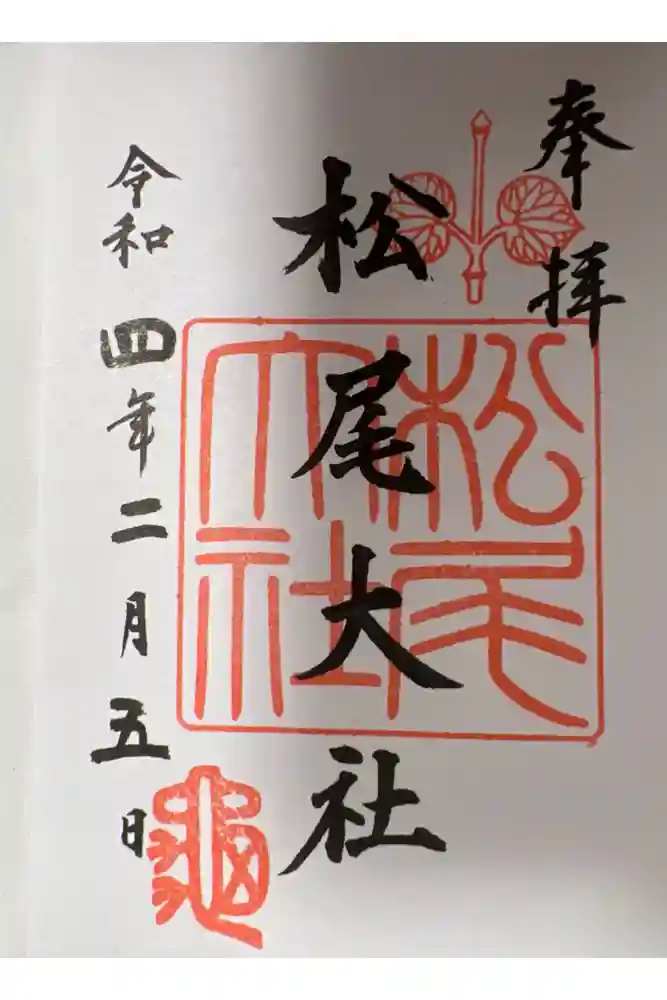 奉拝
松尾大社
松尾大社
令和四年二月五日
亀